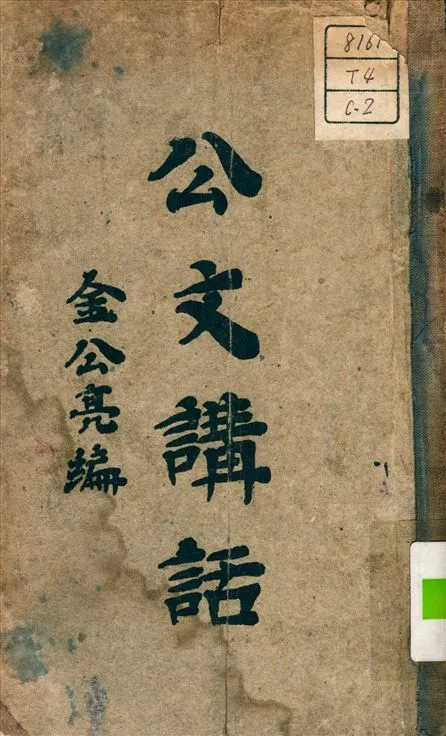 公文講話
金公亮編
8161
T4
C-2